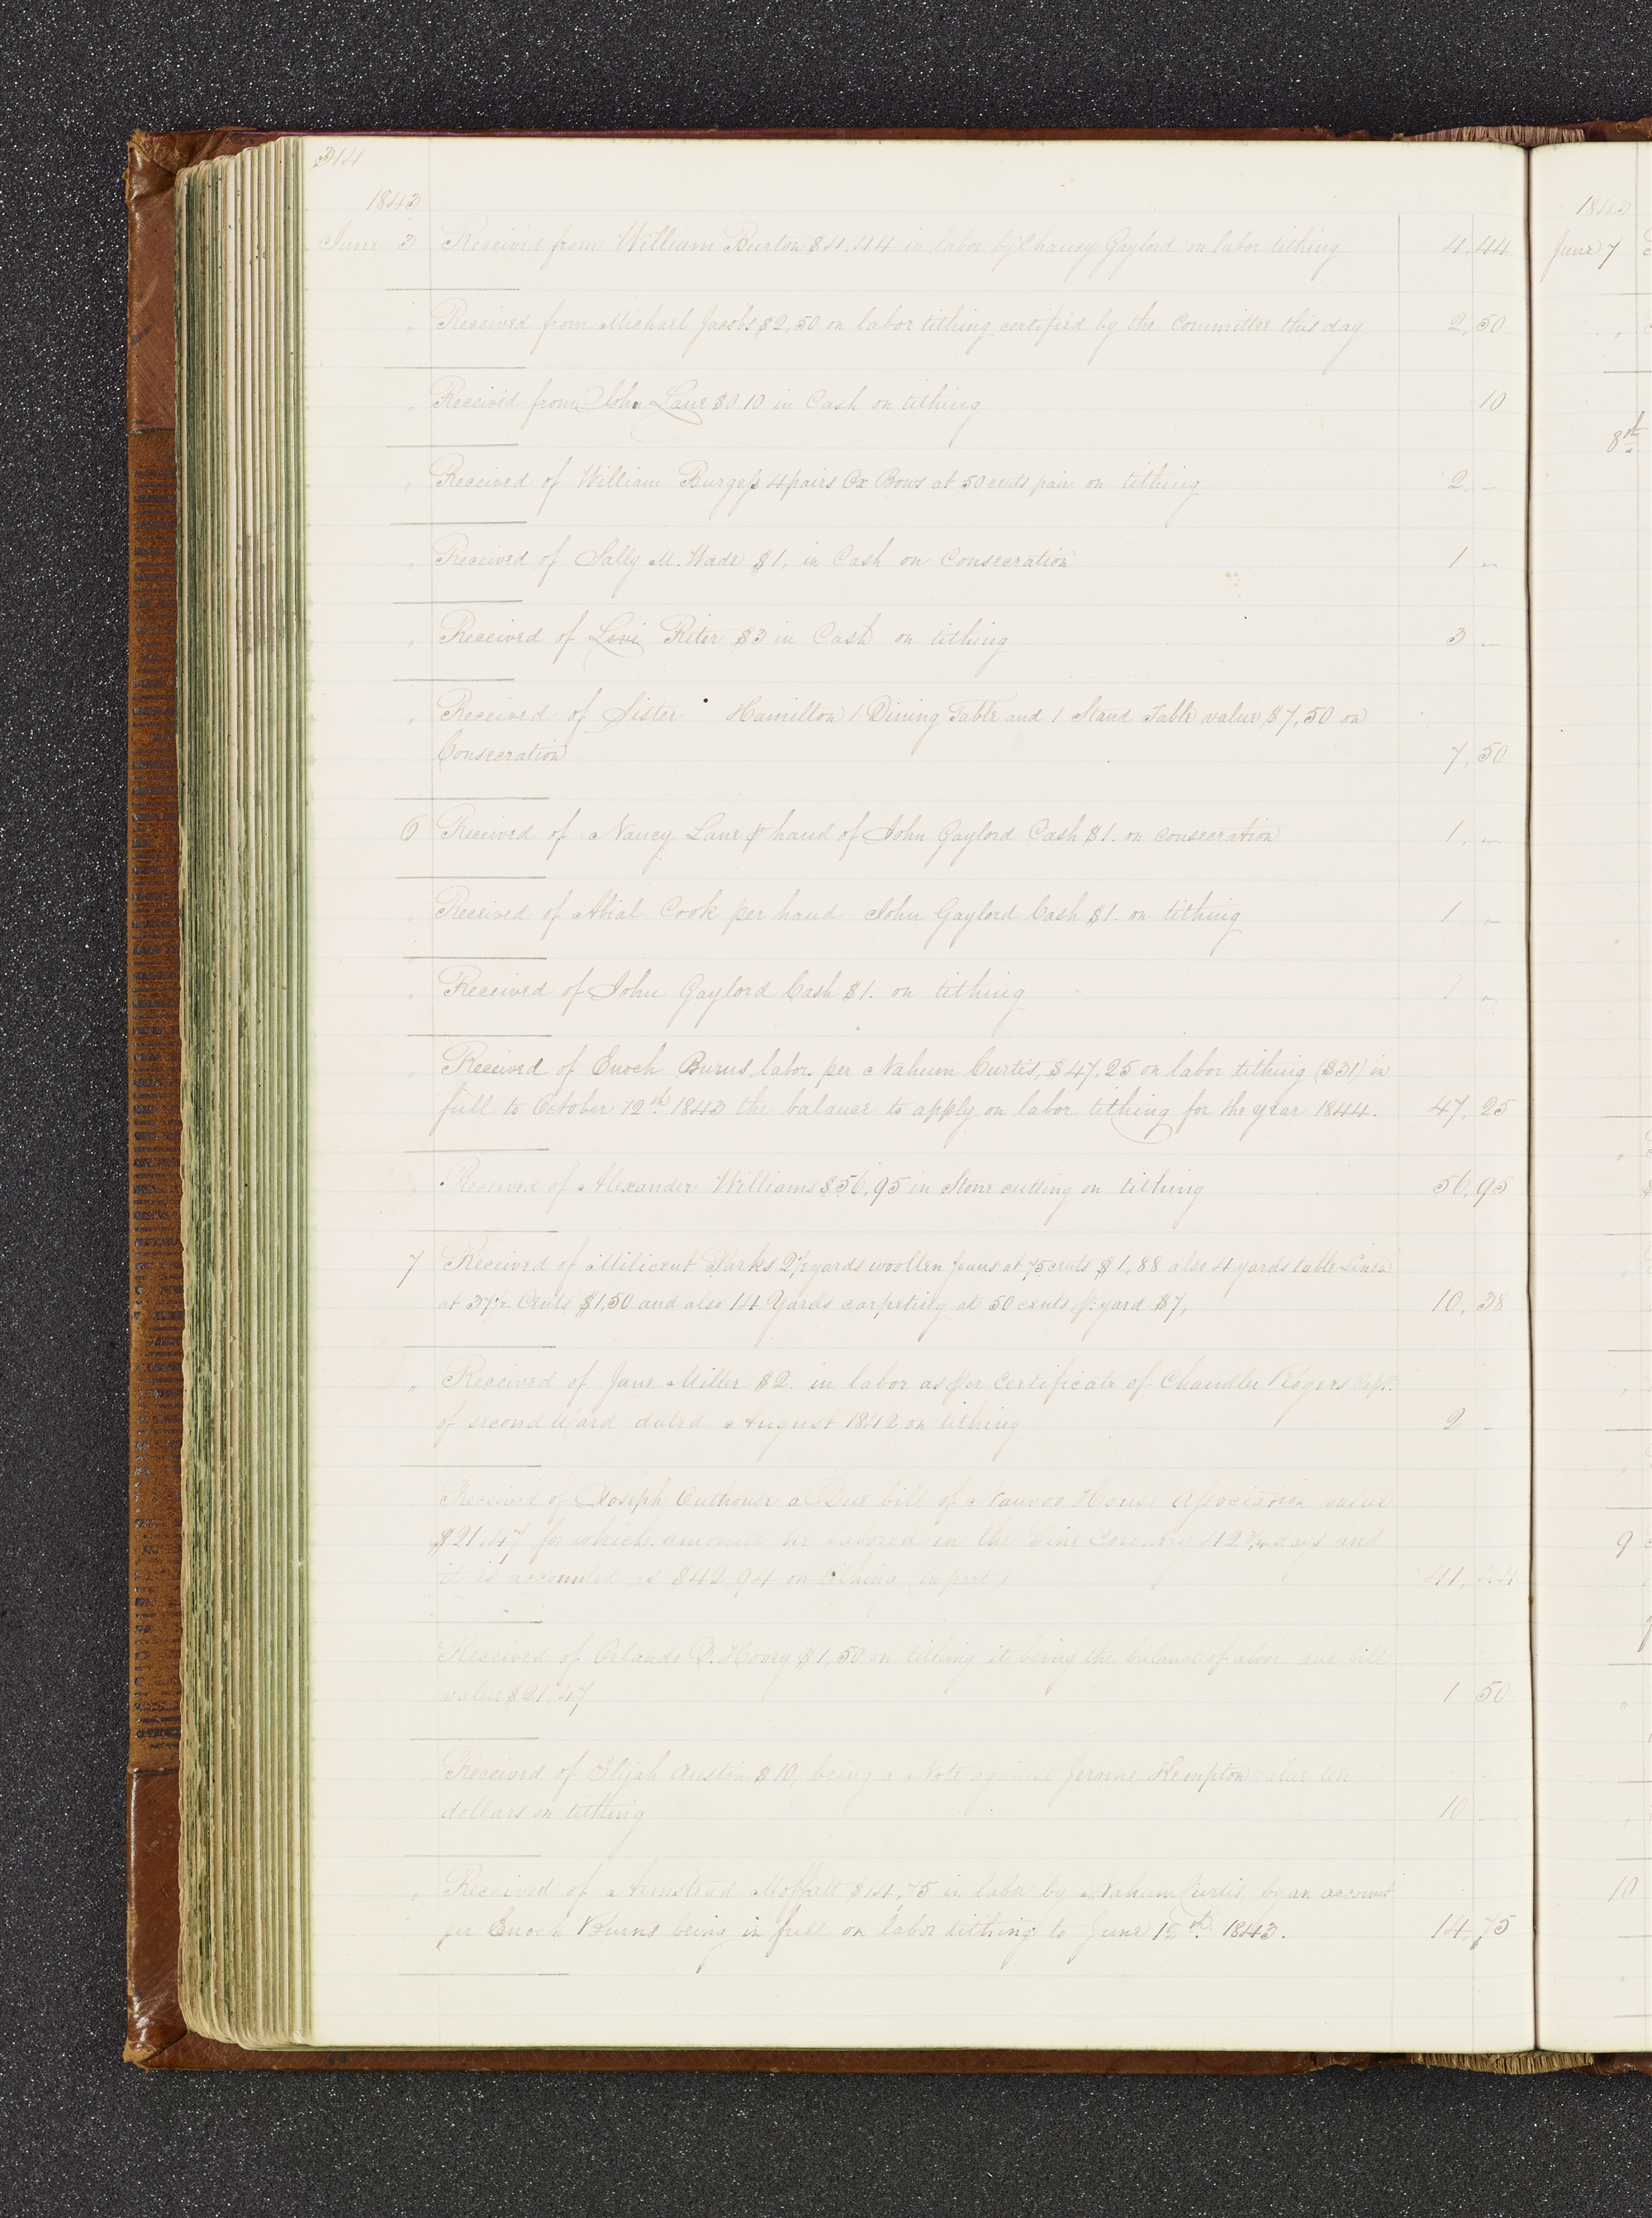 314
1843
June 3 Received from William Burton $4.44 in labor by Chancy Gaylord on labor tithing 4.44
" Received from Michael Jacobs $2,50 on labor tithing certified by the Committee this day 2,50
" Received from John Lane $0.10 in Cash on tithing 10
" Received of William Burgess 4 pairs Ox Bows at 50 cents pair on tithing 2. -
" Received of Sally M. Wade $1, in Cash on Consecration 1 -
" Received of Levi Riter $3 in Cash on tithing 3 -
" Received of Sister Hamilton 1 Dining Table and 1 Stand Table value $7,50 on
Consecration 7,50
6 Received of Nancy Lane ⅌ hand of John Gaylord Cash $1. on consecration 1. -
" Received of Abial Cook per hand John Gaylord Cash $1. on tithing 1 -
" Received of John Gaylord Cash $1. on tithing 1 -
" Received of Enoch Burns, labor. per Nahum Curtis, $47,25 on labor tithing ($31) in
full to October 12th 1843 the balance to apply on labor tithing for the year 1844. 47,25
" Received of Alexander Williams $56,95 in Stone cutting on tithing 56,95
7 Received of Milicent Parks 2½ yards woollen Jeans at 75 cents $1,88 also 4 yards table Linen
at 37½ Cents $1,50 and also 14 Yards carpeting at 50 cents ⅌ yard $7, 10,38
" Received of Jane Miller $2. in labor as per Certificate of Chandler Rogers Capt.
of second Ward dated August 1842 on tithing 2 -
Received of Joseph Outhouse a Due bill of Nauvoo House Association value
$21.47 for which amount he labored in the Pine Country 42¾ days and
it is accounted as $42,94 on tithing (in part) 41.44
Received of Orlando D. Hovey $1,50 on tithing it being the balance of above due bill
value $21.47 1 50
Received of Elijah Austin $10, being a Note against Jerome Kempton value ten
dollars on tithing 10 -
" Received of Armstead Moffatt $14,75 in labor by Nahum Curtis, by an account
per Enoch Burns being in full on labor tithing to June 12th 1843. 14.75
1843
June 7
"
8th
"
9
"
10